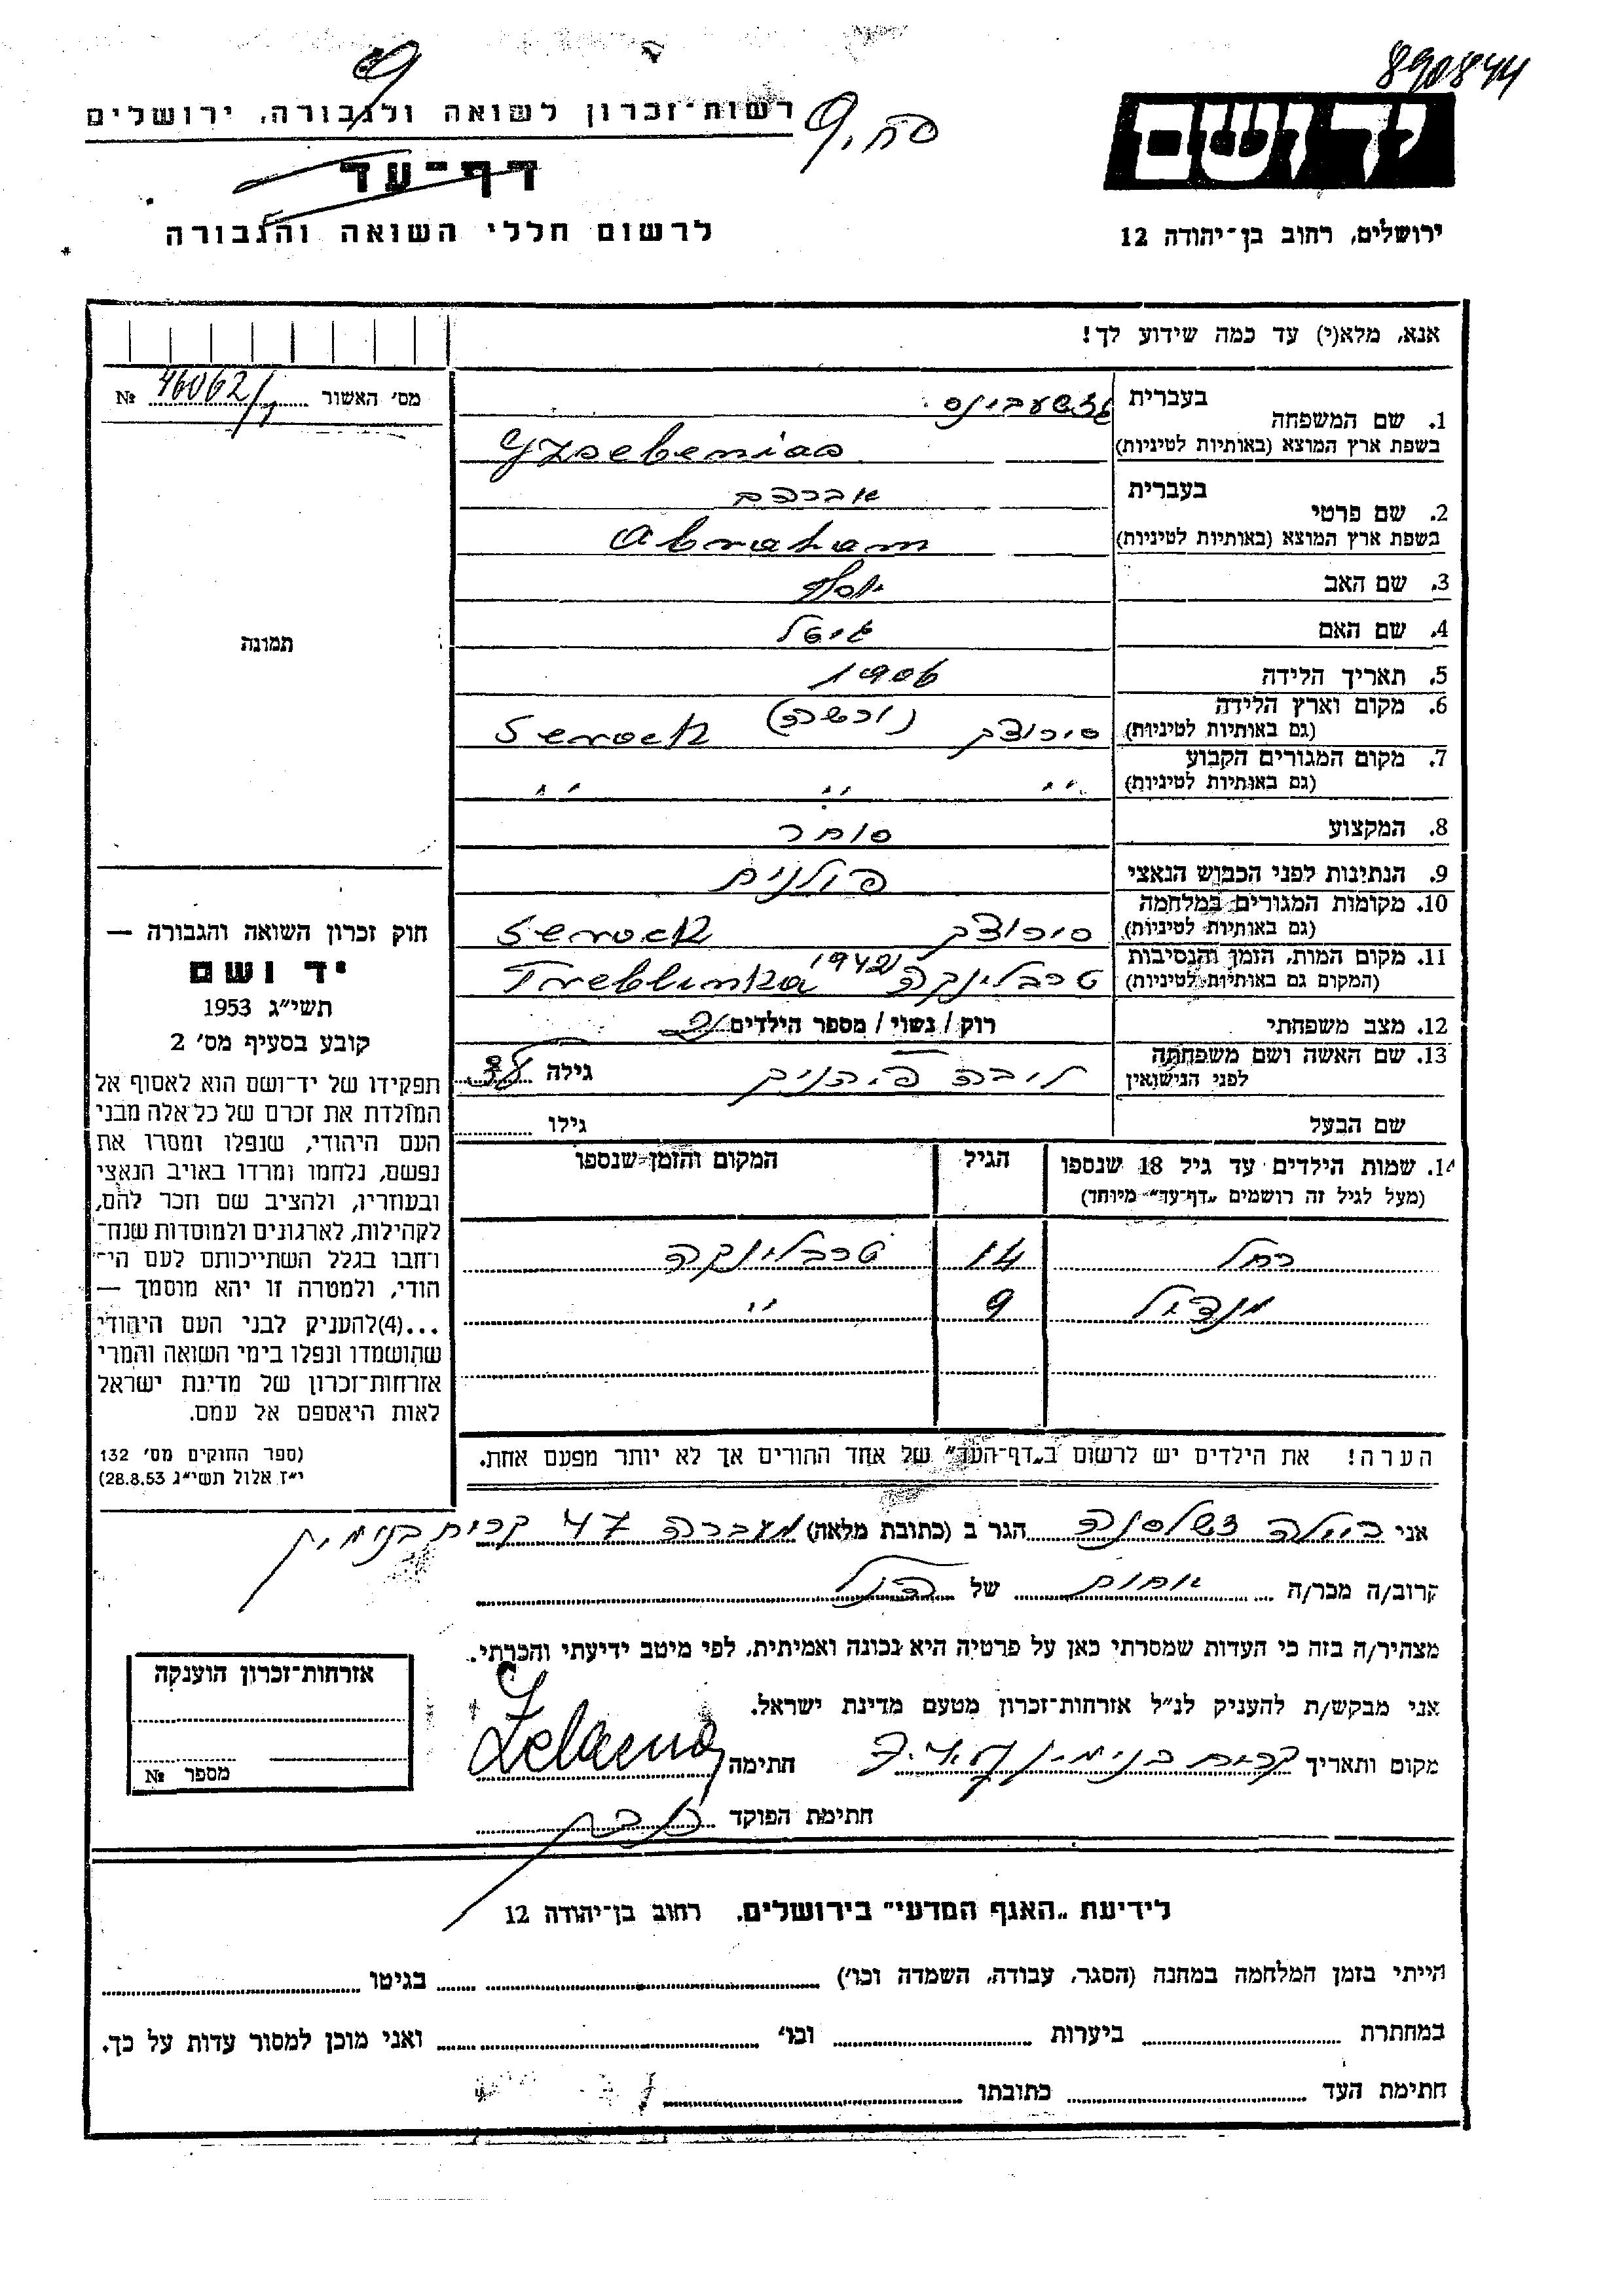 890844
רשות־זכרון לשואה ולגבורה, ירושלים
דף־עד
לרשום חללי השואה והגבורה
יד ושם
ירושלים, רחוב בן־יהודה 12
אנא, מלא(י) עד כמה שידוע לך!
מס׳ האשור № 46062/
1. שם המשפחה
בעברית
בשפת ארץ המוצא (באותיות לטיניות)
2. שם פרטי
בעברית אברהם
בשפת ארץ המוצא (באותיות לטיניות) Abraham
3. שם האב יוסף
4. שם האם גיטל
5. תאריך הלידה 1906
6. מקום וארץ הלידה
(גם באותיות לטיניות) סירוצק (ורשה) Serock
7. מקום המגורים הקבוע
(גם באותיות לטיניות) " " "
8. המקצוע סוחר
9. הנתינות לפני הכבוש הנאצי פולנית
10. מקומות המגורים במלחמה
(גם באותיות לטיניות) סירוצק Serock
11. מקום המות, הזמן והנסיבות
(המקום גם באותיות לטיניות) טרבלינקה 1942 Treblinka
12. מצב משפחתי רוק / נשוי / מספר הילדים 2
13. שם האשה ושם משפחתה
לפני הנישואין ליבה גילה
שם הבעל גילו
14. שמות הילדים עד גיל 18 שנספו
(מעל לגיל זה רושמים „דף־עד״ מיוחד)
הגיל
המקום והזמן שנספו
רחל 14 טרבלינקה
מנדיל 9 "
הערה! את הילדים יש לרשום ב„דף־העד״ של אחד ההורים אך לא יותר מפעם אחת.
תמונה
חוק זכרון השואה והגבורה —
יד ושם
תשי״ג 1953
קובע בסעיף מס׳ 2
תפקידו של יד־ושם הוא לאסוף אל
המולדת את זכרם של כל אלה מבני
העם היהודי, שנפלו ומסרו את
נפשם, נלחמו ומרדו באויב הנאצי
ובעוזריו, ולהציב שם וזכר להם,
לקהילות, לארגונים ולמוסדות שנח־
רחבו בגלל השתייכותם לעם הי־
הודי, ולמטרה זו יהא מוסמך —
...(4)להעניק לבני העם היהודי
שהושמדו ונפלו בימי השואה והמרי
אזרחות־זכרון של מדינת ישראל
לאות היאספם אל עמם.
(ספר החוקים מס׳ 132
י״ז אלול תשי״ג 28.8.53)
אני ביילה הגר ב (כתובת מלאה) מעברה 47 קרית בנימין
קרוב/ה מכר/ה אחות של הנ״ל
מצהיר/ה בזה כי העדות שמסרתי כאן על פרטיה היא נכונה ואמיתית, לפי מיטב ידיעתי והכרתי.
אני מבקש/ת להעניק לנ״ל אזרחות־זכרון מטעם מדינת ישראל.
מקום ותאריך קרית בנימין חתימה
חתימת הפוקד
אזרחות־זכרון הוענקה
מספר №
לידיעת „האגף המדעי״ בירושלים, רחוב בן־יהודה 12
הייתי בזמן המלחמה במחנה (הסגר, עבודה, השמדה וכו׳) בגיטו
במחתרת ביערות וכו׳ ואני מוכן למסור עדות על כך.
חתימת העד כתובתו